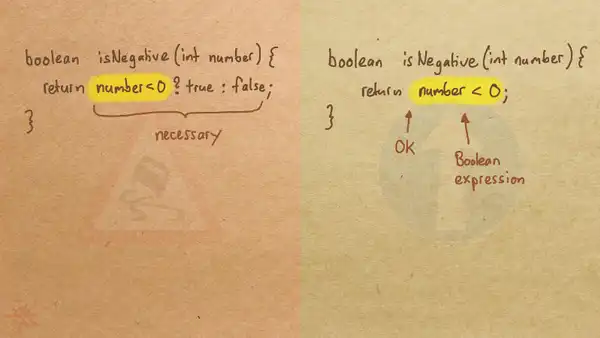 boolean isNegative(int number) {
return number<0 ? true : false;
}
necessary
boolean isNegative(int number) {
return number < 0;
}
OK
Boolean
expression